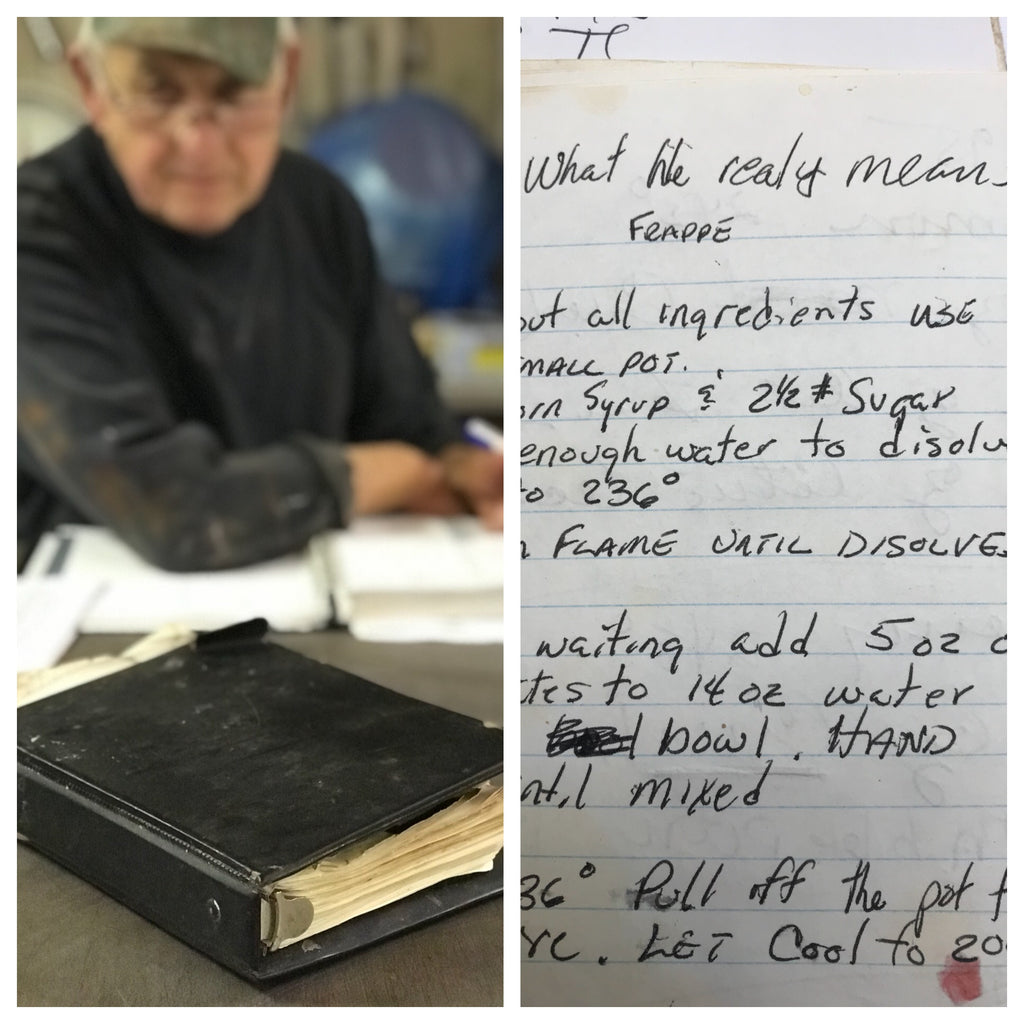 What he realy mean
FRAPPE
out all ingredients USE
MALL POT.
orn Syrup & 2 1/2 # Sugar
enough water to disolv
to 236°
n FLAME UNTIL DISOLVE
waiting add 5 oz o
tes to 14 oz water
bowl. HAND
ntil mixed
36° Pull off the pot f
re. LET Cool to 20